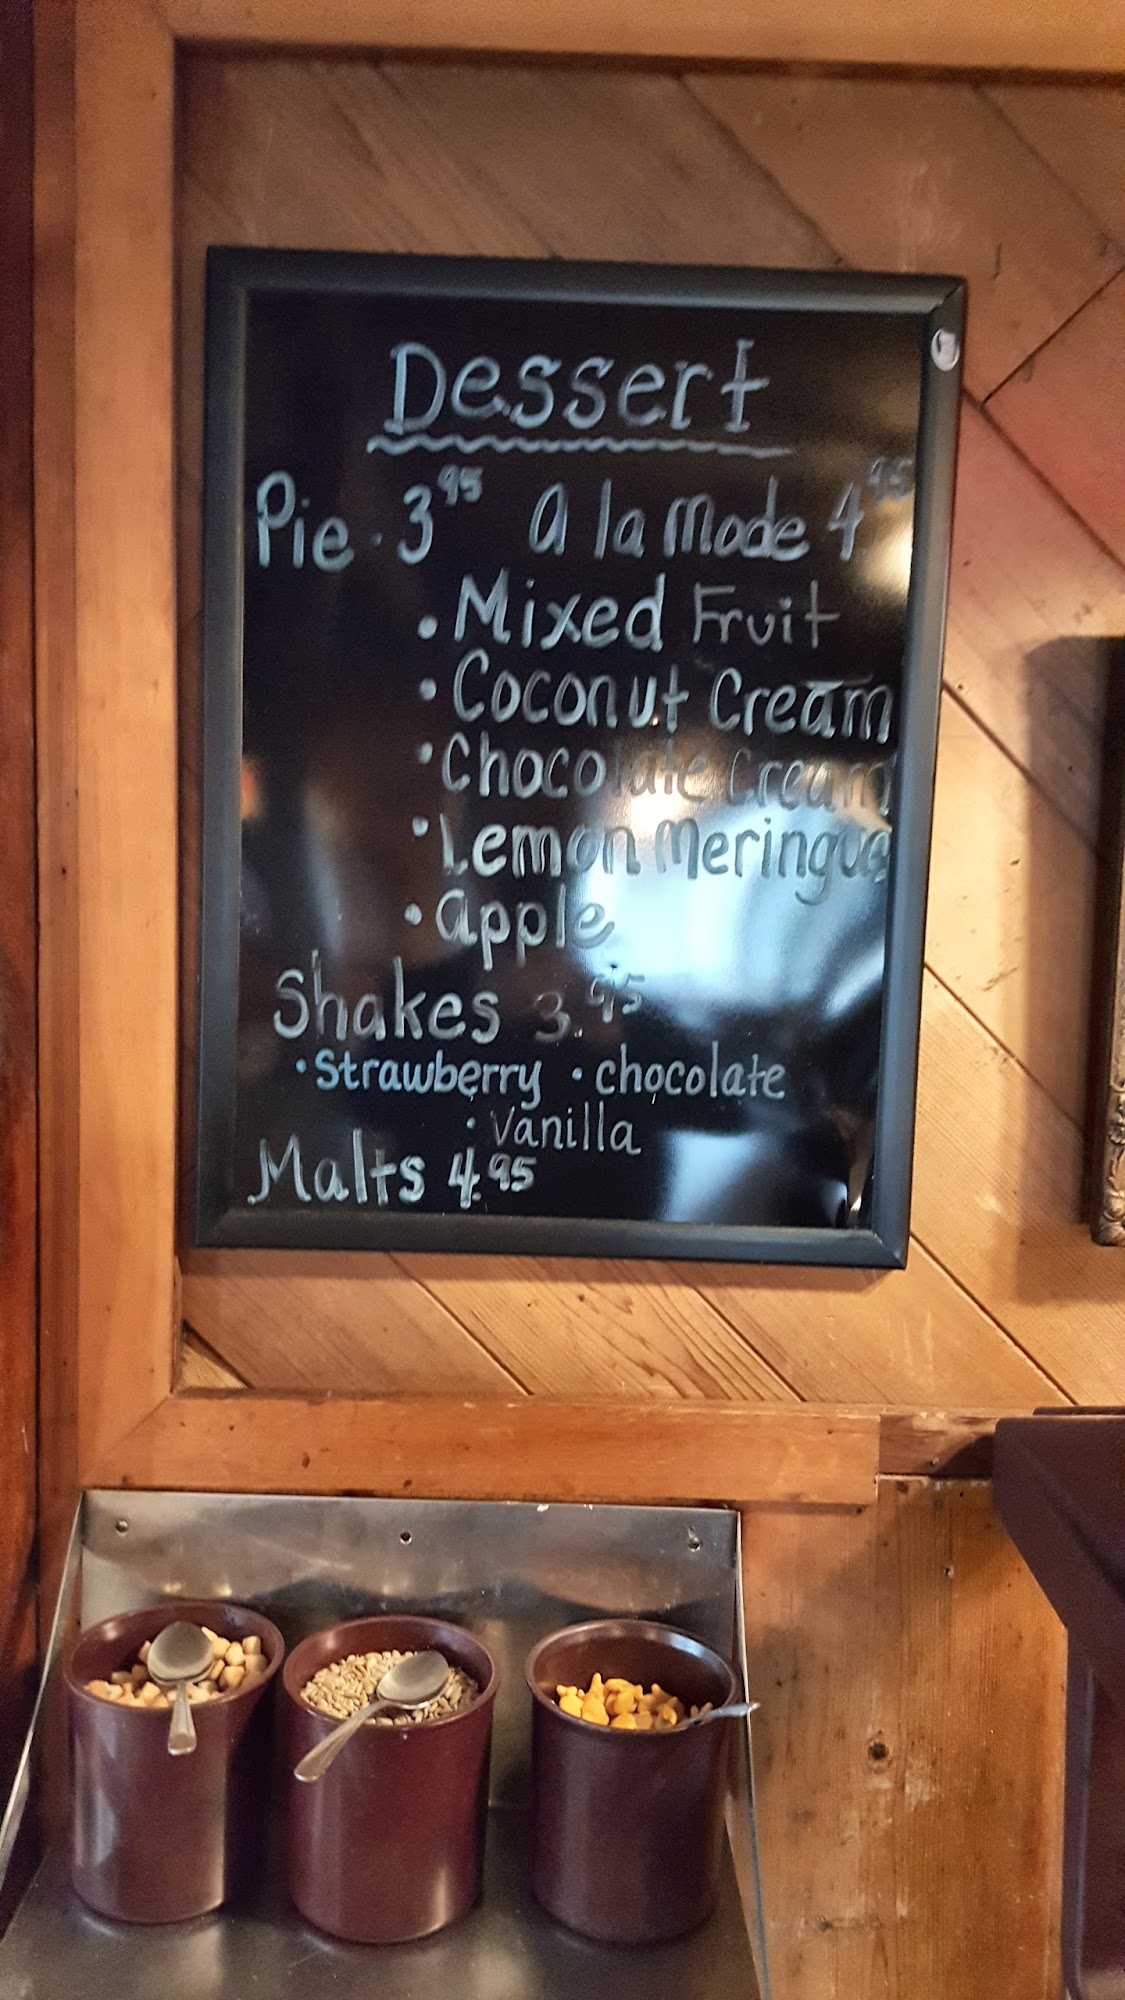 Dessert
Pie - 3 95 a la Mode 4 95
• Mixed Fruit
• Coconut Cream
• Chocolate Cream
• Lemon Meringue
• apple
Shakes 3.95
• Strawberry • chocolate
• Vanilla
Malts 4.95